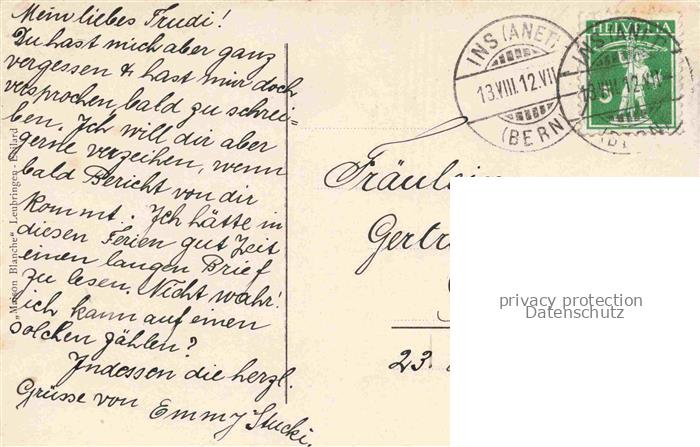 Mein liebes Trudi!
Du hast mich aber ganz
vergessen & hast mir doch
versprochen bald zu schrei=
ben. Ich will dir aber
gerne verzeihen, wenn
bald Bericht von dir
kommt. Ich hätte in
diesen Ferien gut Zeit
einen langen Brief
zu lesen. Nicht wahr!
ich kann auf einen
solchen zählen?
Indessen die herzl.
Grüsse von Emmy Stucki.
„Maison Blanche" Leubringen-
INS (ANET)
13.VIII.12.VII
(BERN)
HELVETIA
5
INS (ANET)
13.VIII.12.VII
(BERN)
Fräulein
Gertr
23.
privacy protection
Datenschutz